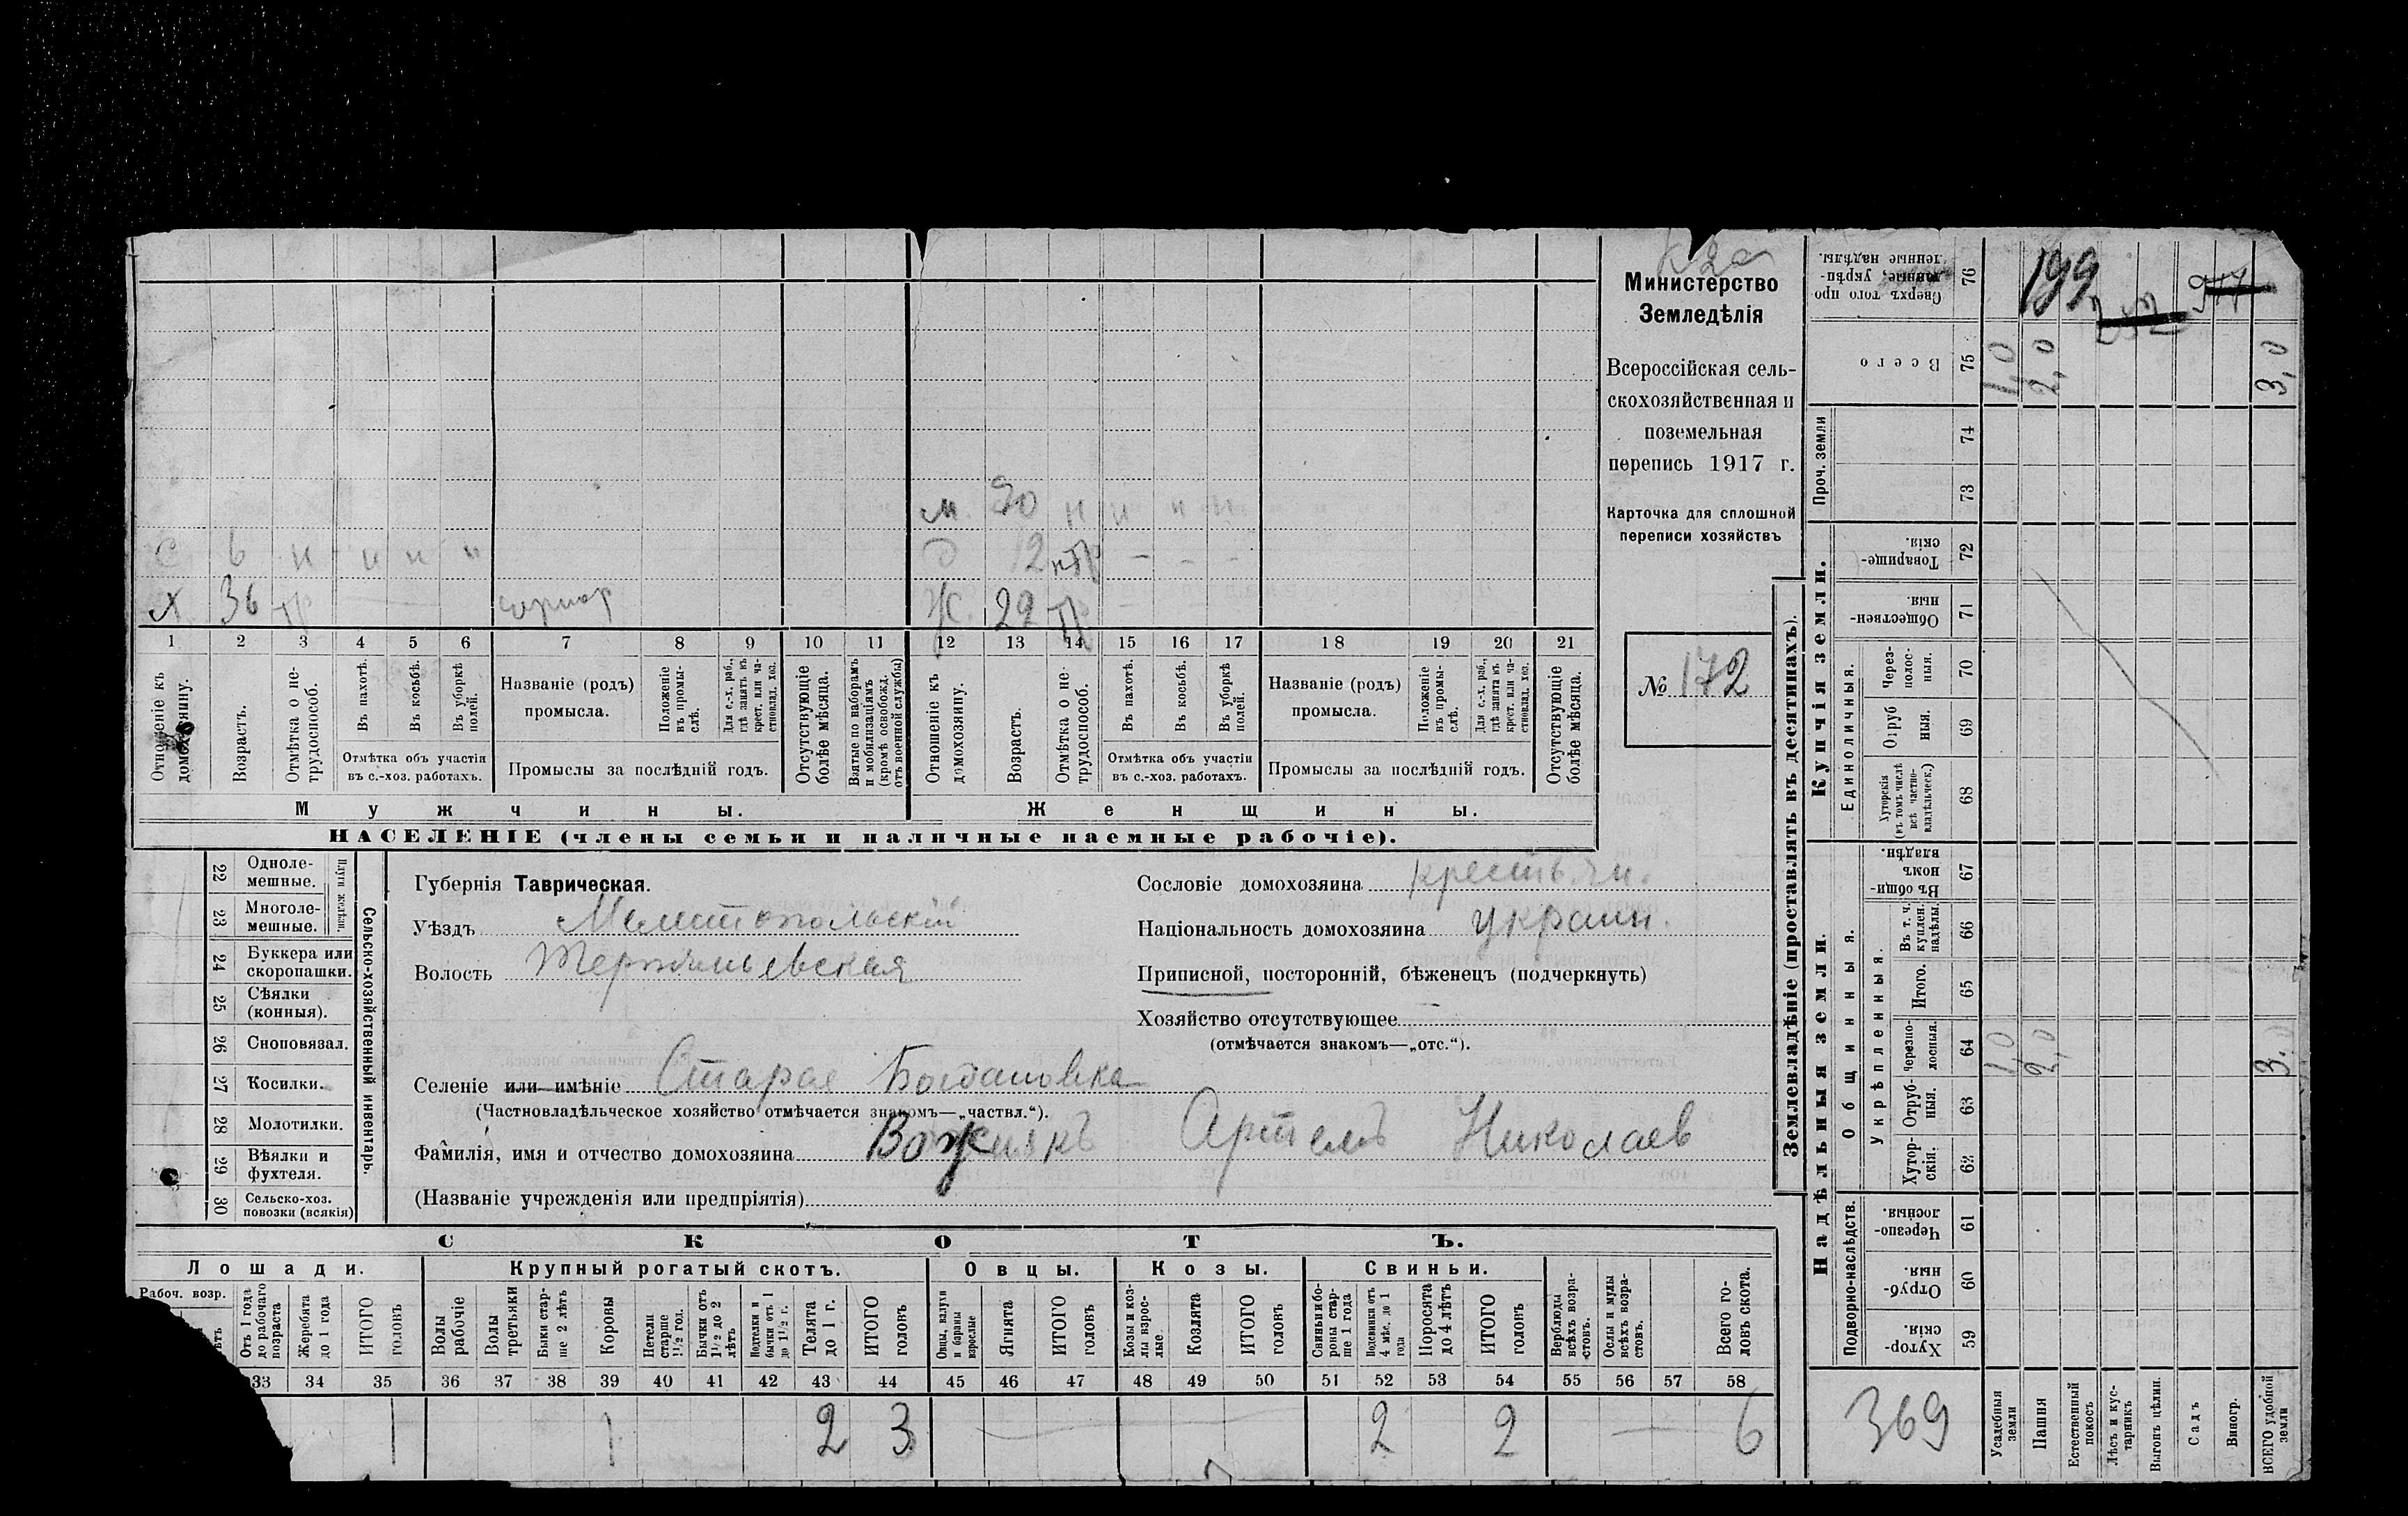 Министерство
Земледѣлія
Всероссійская сель-
скохозяйственная и
поземельная
перепись 1917 г.
Карточка для сплошной
переписи хозяйствъ
№ 172
м. 30 н н н н
с 6 н н н н
д 12 - - -
х 36 тр
ж. 29 тр
1 2 3 4 5 6 7 8 9 10 11 12 13 14 15 16 17 18 19 20 21
Отношеніе къ домохозяину.
Возрастъ.
Отмѣтка о не-трудоспособ.
Въ пахотѣ.
Въ косьбѣ.
Въ уборкѣ полей.
Отмѣтка объ участіи
въ с.-хоз. работахъ.
Названіе (родъ)
промысла.
Положеніе въ промы-слѣ.
Для с.-х. раб., гдѣ занятъ въ крест. или ча-стновлад. хоз.
Промыслы за послѣдній годъ.
Отсутствующіе болѣе мѣсяца.
Взятые по наборамъ и мобилизаціямъ (кромѣ освобожд. отъ военной службы)
Отношеніе къ домохозяину.
Возрастъ.
Отмѣтка о не-трудоспособ.
Въ пахотѣ.
Въ косьбѣ.
Въ уборкѣ полей.
Отмѣтка объ участіи
въ с.-хоз. работахъ.
Названіе (родъ)
промысла.
Положеніе въ промы-слѣ.
Для с.-х. раб., гдѣ занята въ крест. или ча-стновлад. хоз.
Промыслы за послѣдній годъ.
Отсутствующіе болѣе мѣсяца.
Мужчины.
Женщины.
НАСЕЛЕНІЕ (члены семьи и наличные наемные рабочіе).
Сельско-хозяйственный инвентарь.
Плуги желѣзн.
22 Одноле-мешные.
23 Многоле-мешные.
24 Буккера или скоропашки.
25 Сѣялки (конныя).
26 Сноповязал.
27 Косилки.
28 Молотилки.
29 Вѣялки и фухтеля.
30 Сельско-хоз. повозки (всякія)
Губернія Таврическая.
Уѣздъ Мелитопольскій
Волость Терпеньевская
Сословіе домохозяина крестьян.
Національность домохозяина украин.
Приписной, посторонній, бѣженецъ (подчеркнуть)
Хозяйство отсутствующее
(отмѣчается знакомъ—„отс.“).
Селеніе или имѣніе Старая Богдановка
(Частновладѣльческое хозяйство отмѣчается знакомъ—„частвл.“).
Фамилія, имя и отчество домохозяина Вожиякъ Артемъ Николаев
(Названіе учрежденія или предпріятія)
СКОТЪ.
Лошади. Крупный рогатый скотъ. Овцы. Козы. Свиньи.
Рабоч. возр.
Отъ 1 года до рабочаго возраста
Жеребята до 1 года
ИТОГО головъ
Волы рабочіе
Волы третьяки
Быки стар-ше 2 лѣтъ
Коровы
Нетели старше 1 1/2 год.
Бычки отъ 1 1/2 до 2 лѣтъ
Подтелки и бычки отъ 1 до 1 1/2 г.
Телята до 1 г.
ИТОГО головъ
Овцы, валухи и бараны взрослые
Ягнята
ИТОГО головъ
Козы и коз-лы взрос-лые.
Козлята
ИТОГО головъ
Свиньи и бо-ровы стар-ше 1 года
Подсвинки отъ 4 мѣс. до 1 года
Поросята до 4 лѣтъ
ИТОГО головъ
Верблюды всѣхъ возра-стовъ.
Ослы и мулы всѣхъ возра-стовъ.
Всего го-ловъ скота.
33 34 35 36 37 38 39 40 41 42 43 44 45 46 47 48 49 50 51 52 53 54 55 56 57 58
1 1 2 3 2 2 6
Землевладѣніе (проставлять въ десятинахъ).
Купчія земли.
Надѣльныя земли.
Сверхъ того про-данные, укрѣп-ленные надѣлы. 76 199
Всего 75 1,0 2,0 3,0
Проч. земли 74 73
Товарище-скія. 72
Обществен-ныя. 71
Единоличныя.
Через-полос-ныя. 70
Отруб-ныя. 69
Хуторскія (въ томъ числѣ всѣ частно-владѣльческ.) 68
Въ общи-номъ владѣн. 67
Общинныя.
Укрѣпленныя.
Въ т. ч. куплен. надѣлы. 66
Итого. 65
черезпо-лосныя. 64 1,0 2,0 3.0
Отруб-ныя. 63
Хутор-скія. 62
Подворно-наслѣдств.
Черезпо-лосныя. 61
Отруб-ныя. 60
Хутор-скія. 59
369
Усадебныя земли
Пашня
Естественный покосъ
Лѣсъ и кус-тарникъ
Выгонъ цѣлин.
Садъ
Виногр.
ВСЕГО удобной земли